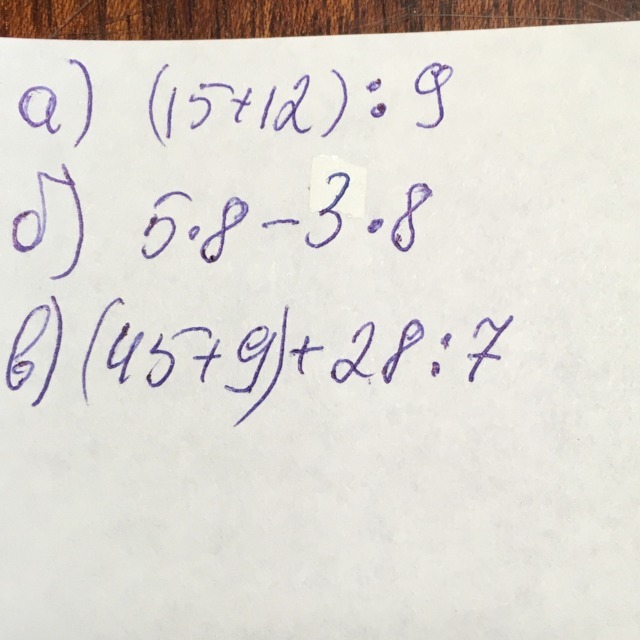 а) (15+12):9
б) 5·8-3·8
в) (45+9)+28:7